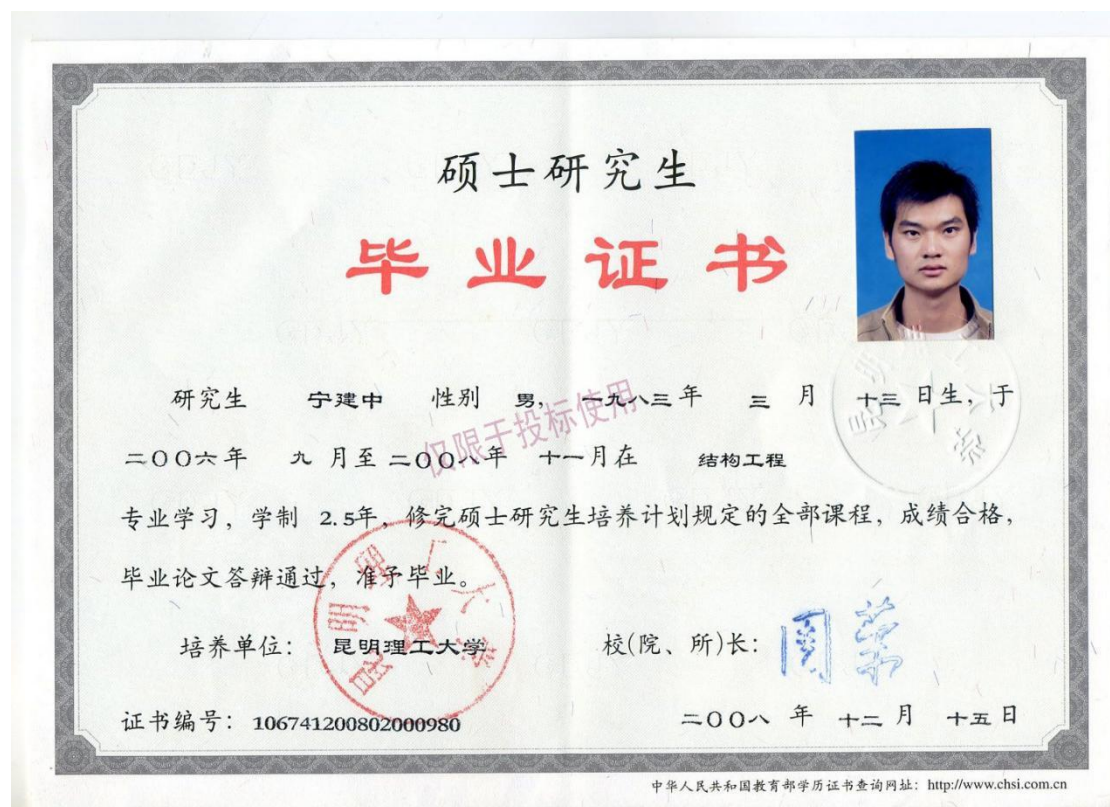 硕士研究生
毕业证书
研究生 宁建中 性别 男, 一九八三年 三 月 十三 日生, 于
二〇〇六年 九 月至 二〇〇八年 十一月在 结构工程
专业学习, 学制 2.5年, 修完硕士研究生培养计划规定的全部课程, 成绩合格,
毕业论文答辩通过, 准予毕业。
仅限于投标使用
昆明理工大学
培养单位: 昆明理工大学 校(院、所)长: 周荣
证书编号: 106741200802000980 二〇〇八 年 十二 月 十五 日
中华人民共和国教育部学历证书查询网址: http://www.chsi.com.cn